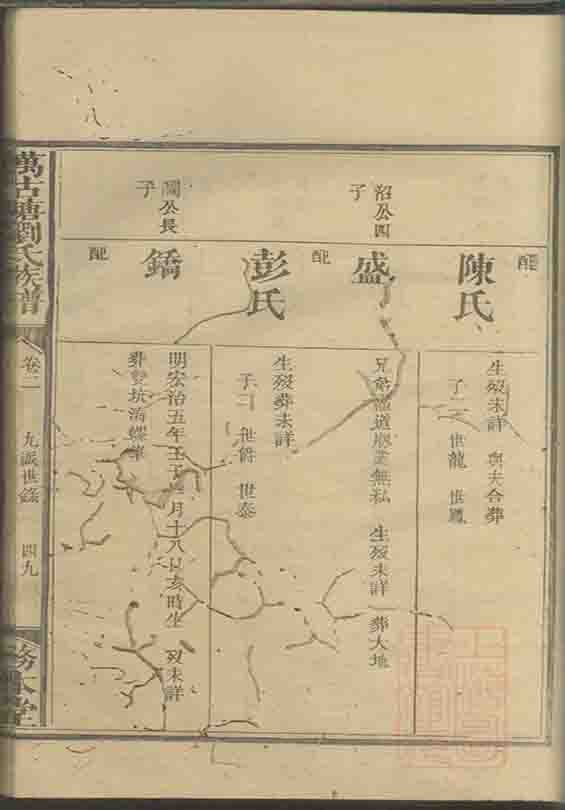 配
陳氏
生歿未詳 與夫合葬
子二 世龍 世鳳
沼公四
子
盛
無私 生歿未詳 葬大地
配
彭氏
生歿葬未詳
子二 世爵 世泰
公長
子
鐈
明宏治五年壬子 月十八日亥時生 歿未詳
葬雙坑
配
萬古塘劉氏族譜
卷二
九派世錄
四九
務本堂